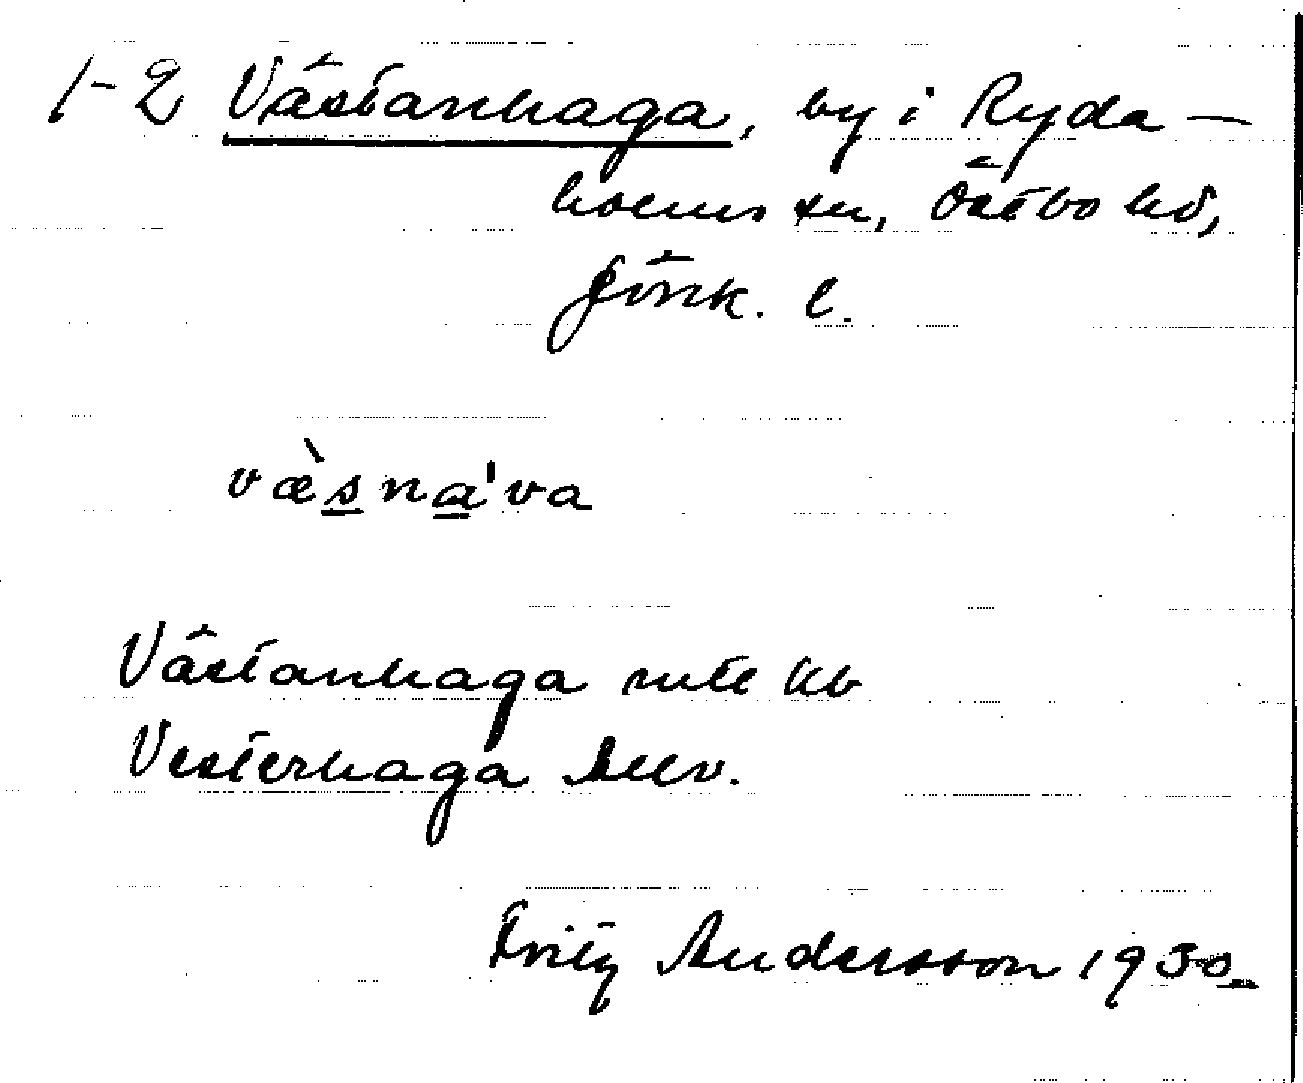 1-2 Västanhaga, by i Ryda-
holms sn, Östbo hd,
Jönk. l.
væ̀sna'va
Västanhaga mtl kb
Vesterhaga
Fritz Andersson 1930